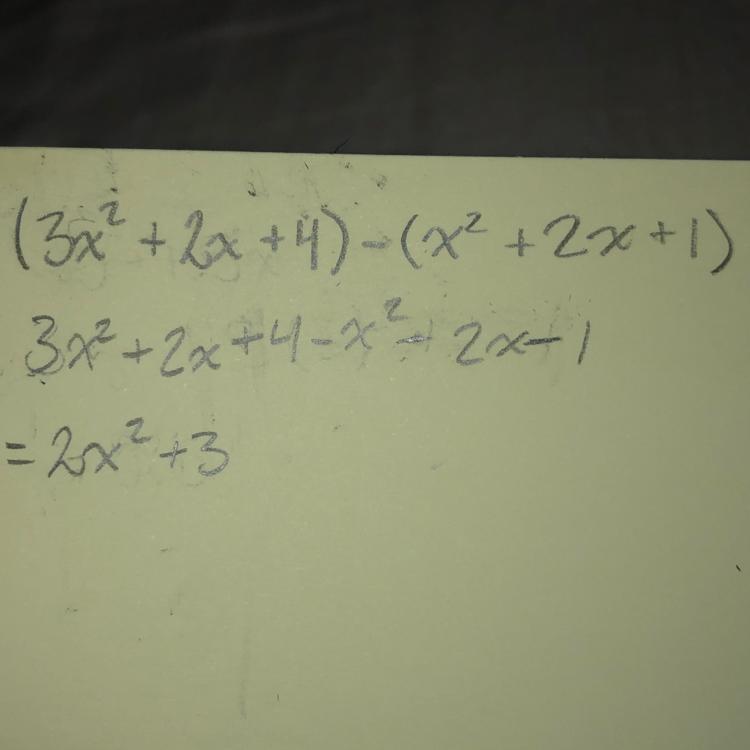 (3x² + 2x + 4) - (x² + 2x + 1)
3x² + 2x + 4 - x² - 2x - 1
= 2x² + 3